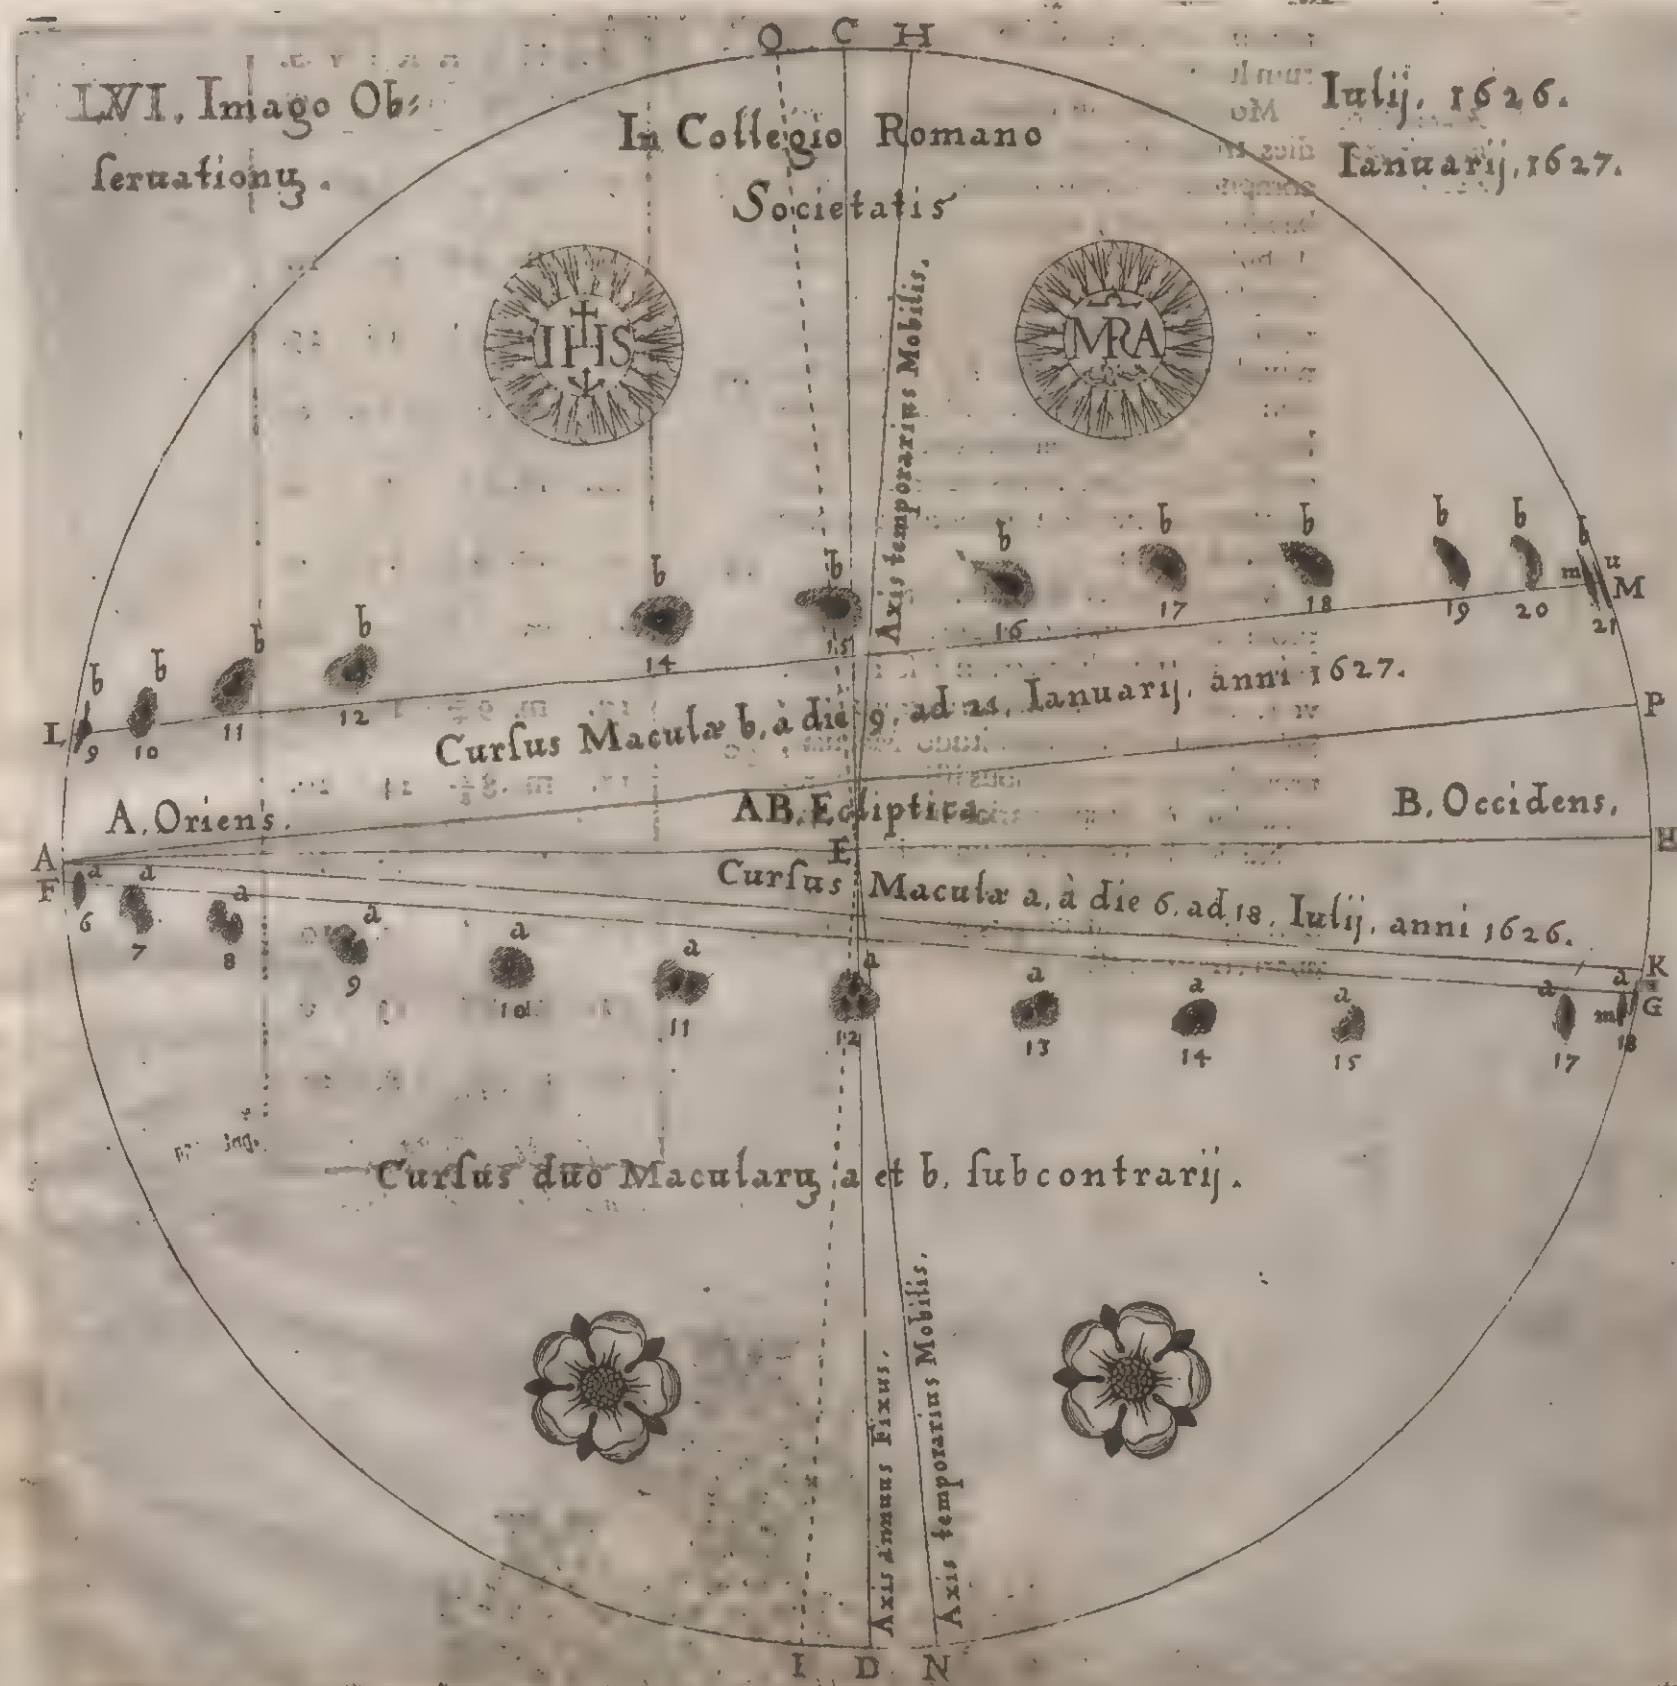 O C H
LVI. Imago Ob⸗
ſeruationuꝫ.
In Collegio Romano
Societatis
Iulij. 1626.
Ianuarij, 1627.
IHS
MRA
Axis temporarius Mobilis.
b b b b b b b b b b b b
m u
L M
9 10 11 12 14 15 16 17 18 19 20 21
Curſus Maculæ b, à die 9. ad 21. Ianuarij. anni 1627.
P
A. Oriens.
AB. Ecliptica
B. Occidens.
A
E
F
Curſus Maculæ a, à die 6. ad 18. Iulij. anni 1626.
K
a a a a a a a a a a a a
m
G
6 7 8 9 10 11 12 13 14 15 17 18
Curſus duo Macularuꝫ a et b. ſubcontrarij.
Axis annuus Fixus.
Axis temporarius Mobilis.
I D N